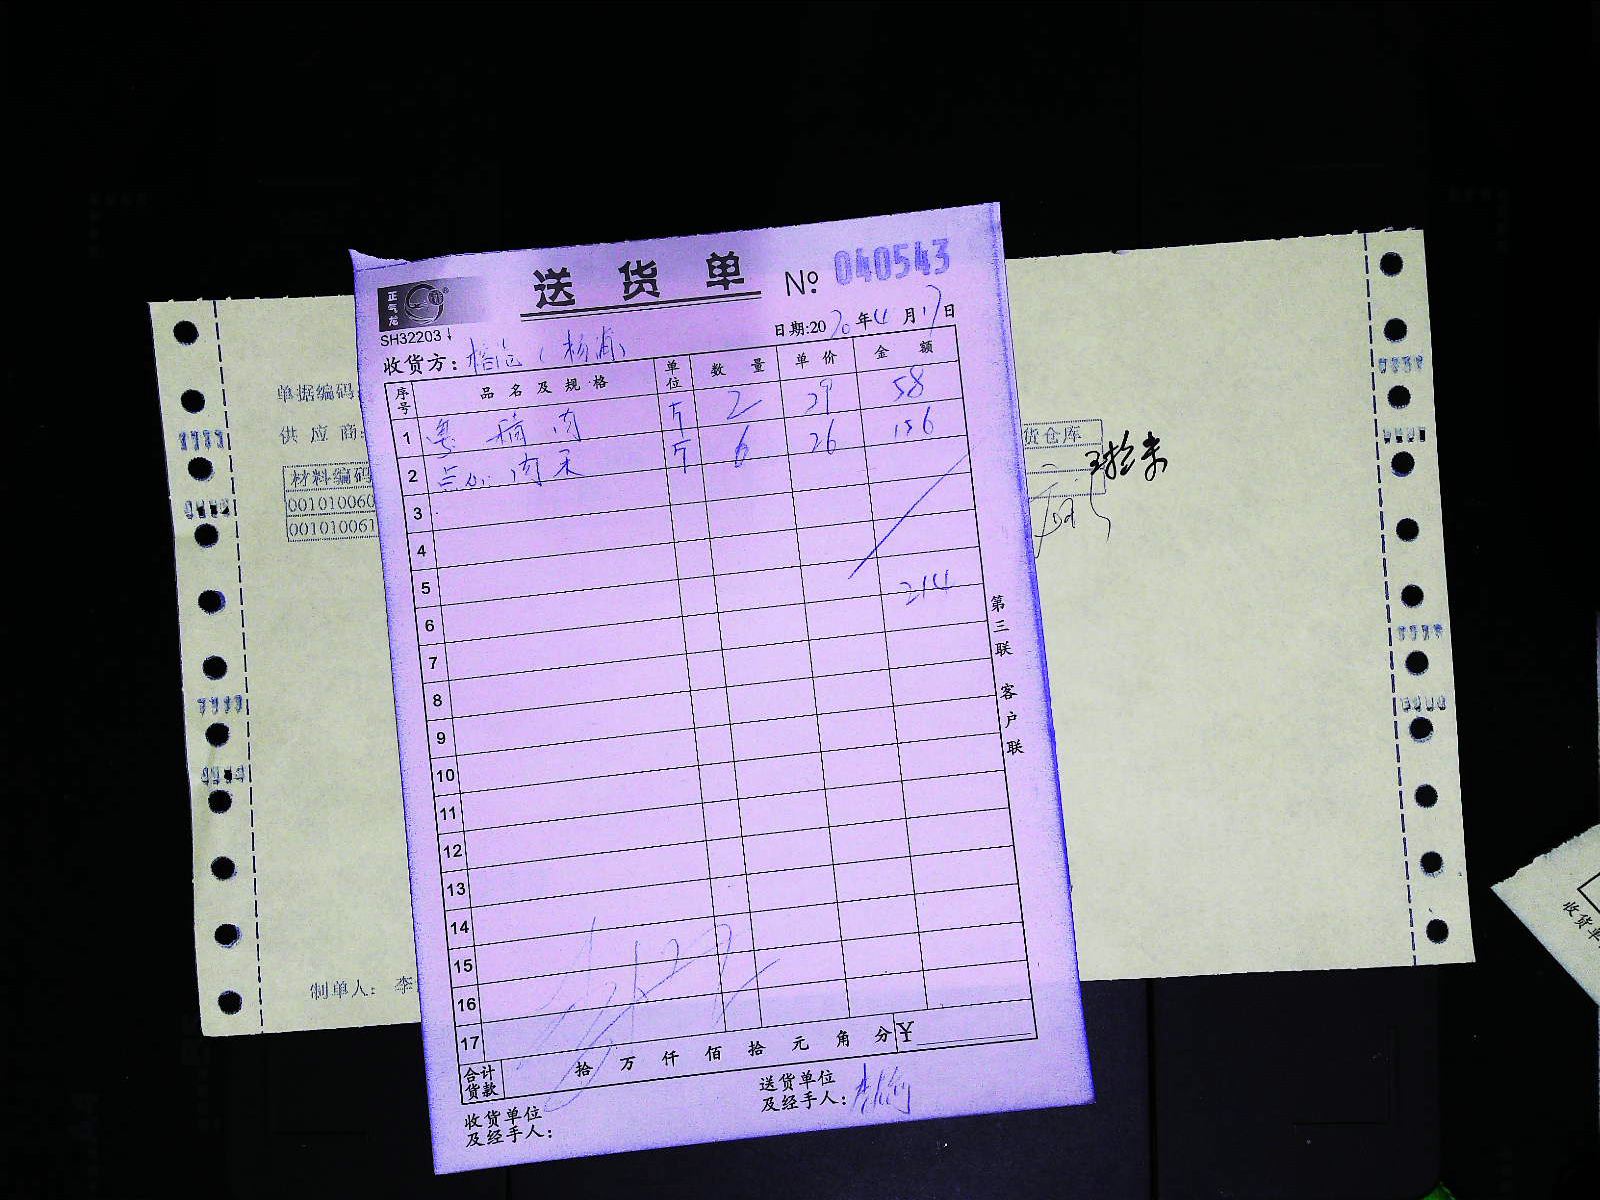 送货单 № 040543
正气龙
SH32203
日期:2020年4月17日
收货方:
序号 品名及规格 单位 数量 单价 金额
1 肉 斤 2 29 58
2 点心肉 斤 6 26 156
3
4
5
214
6
7
8
9
10
11
12
13
14
15
16
17
合计货款 拾 万 仟 佰 拾 元 角 分 ¥
收货单位
及经手人:
送货单位
及经手人:
第三联 客户联
单据编码
供应商:
材料编码
001010060
001010061
制单人: 李
货仓库
收货单